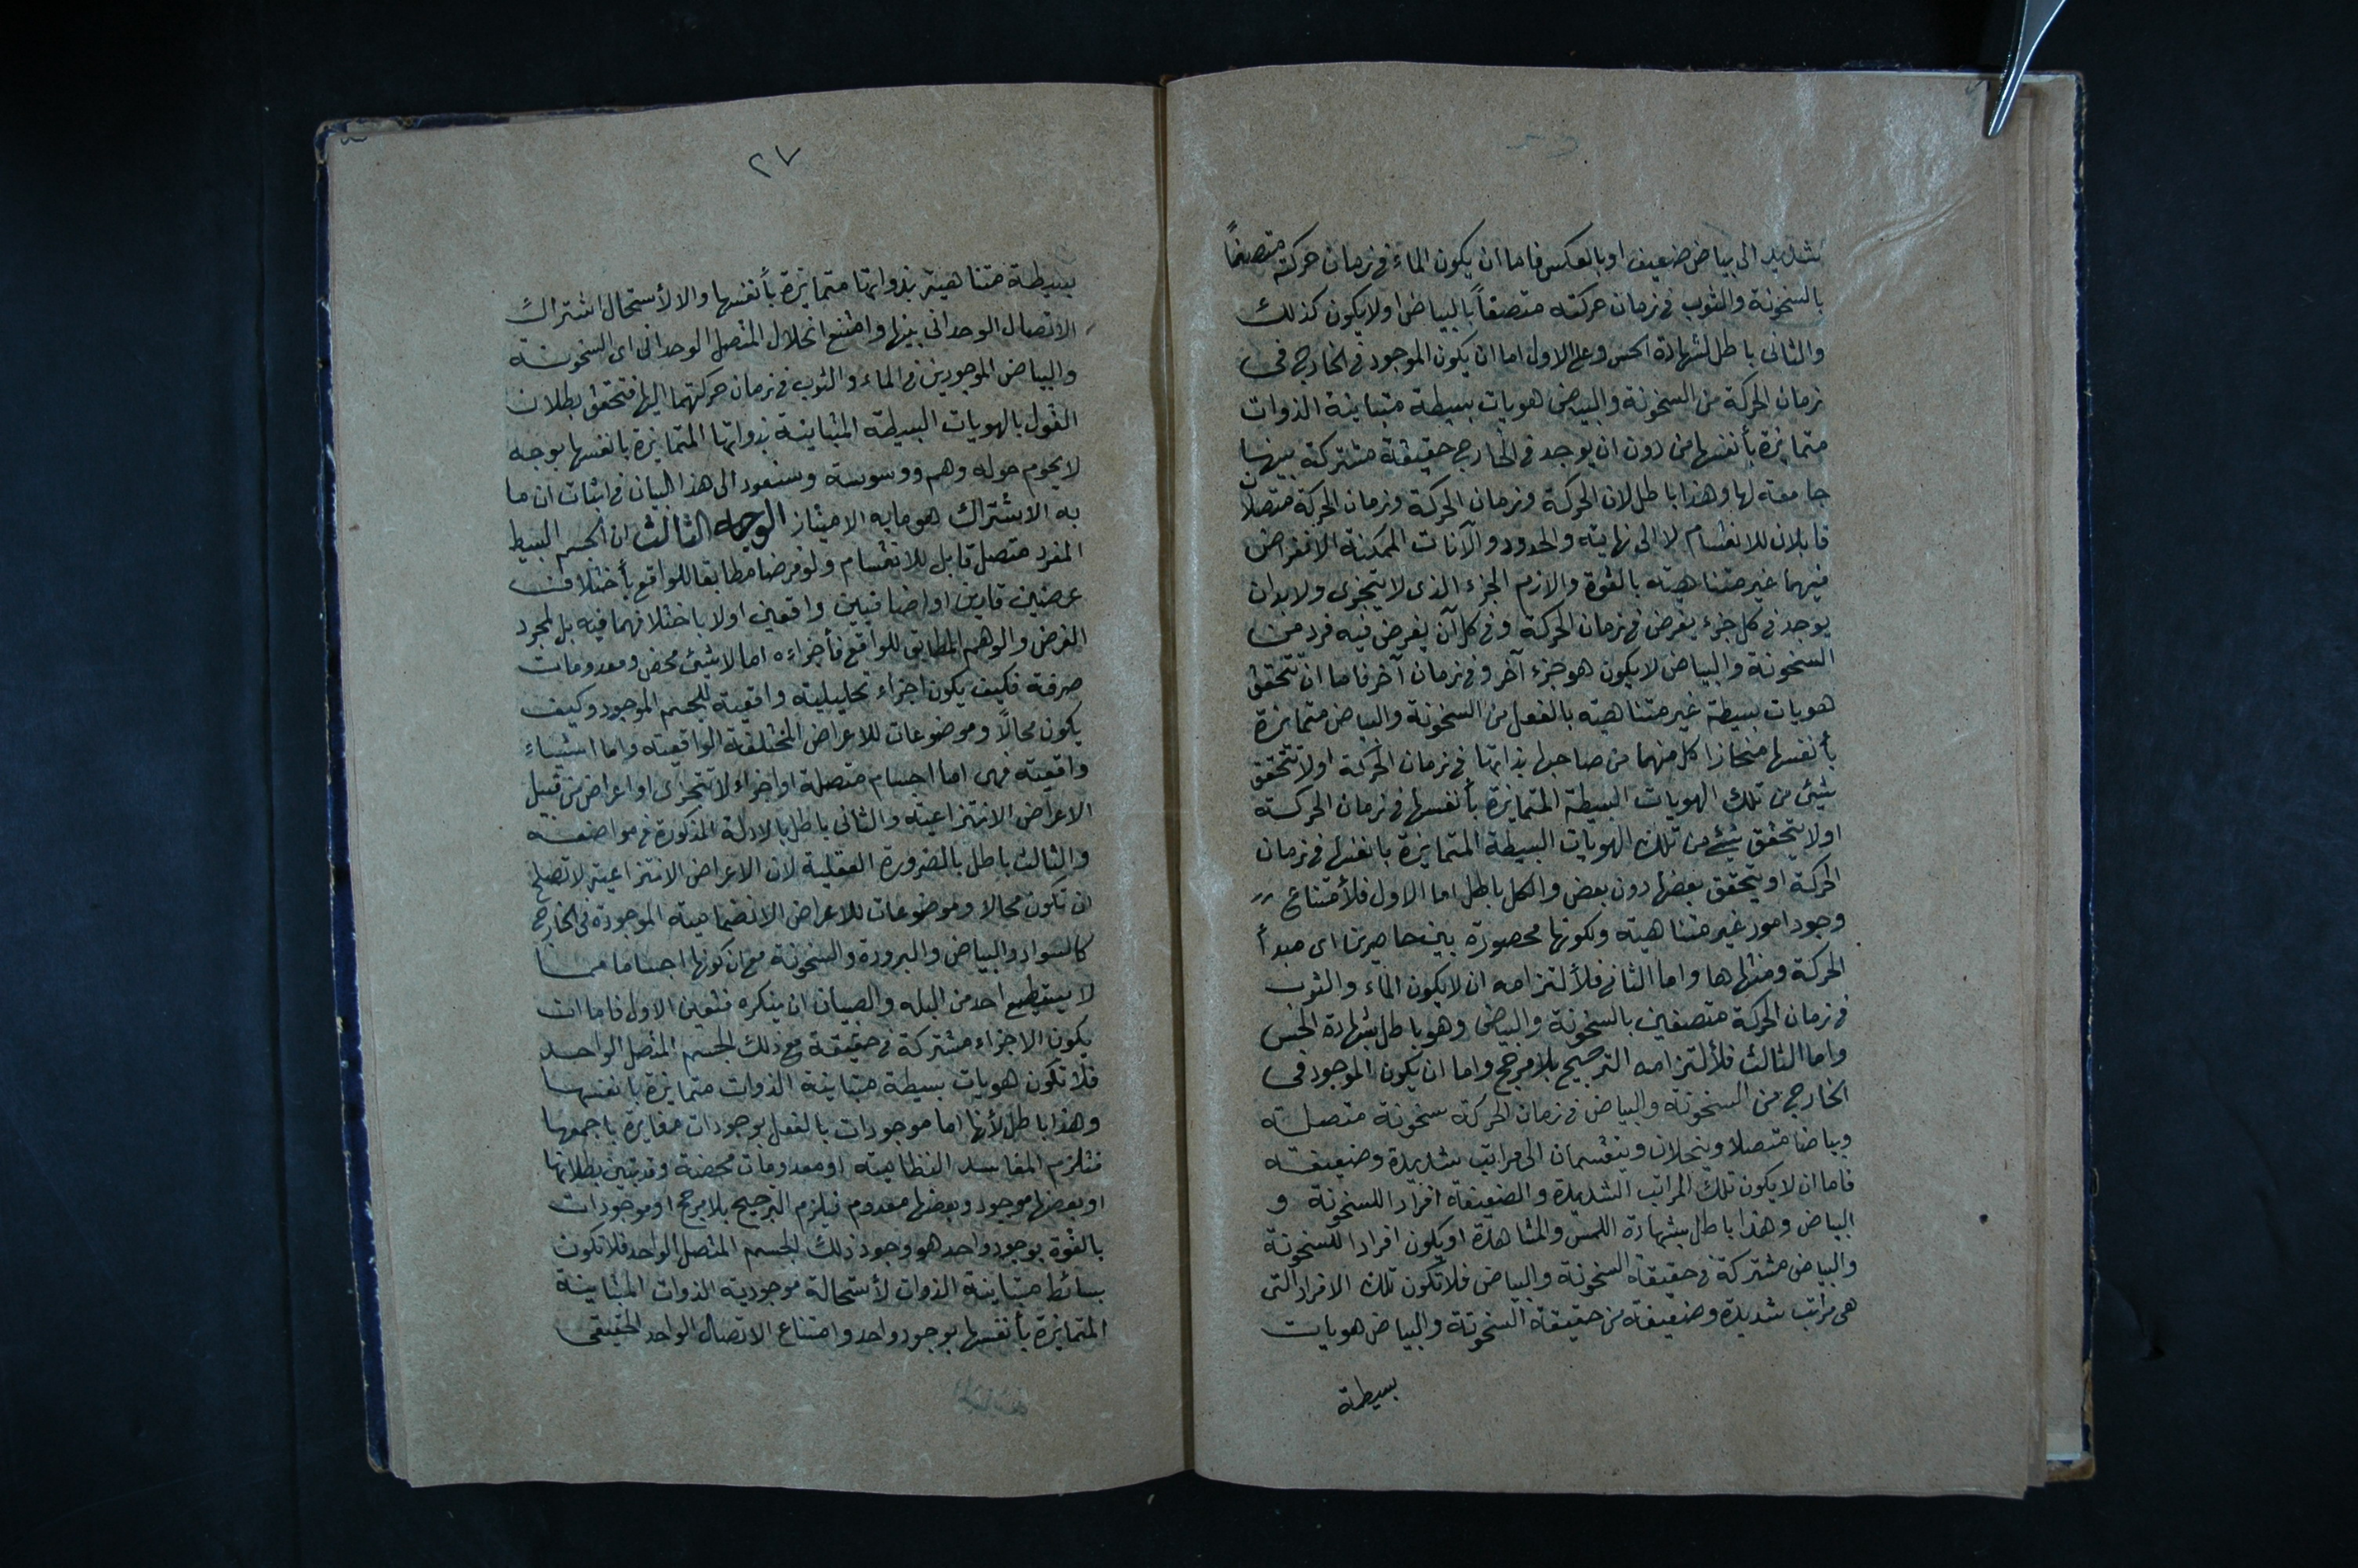 شديد الى بياض ضعيف او بالعكس فاما ان يكون الماء فى زمان حركته متصفاً
بالسخونة والثوب فى زمان حركته متصفاً بالبياض اولا يكون كذلك
والثانى باطل لشهادة الحس وعلى الاول اما ان يكون الموجود فى الخارج فى
زمان الحركة من السخونة والبياض هويات بسيطة متباينة الذوات
متمايزة بأنفسها من دون ان يوجد فى الخارج حقيقة مشتركة بينها
جامعة لها وهذا باطل لان الحركة وزمان الحركة وزمان الحركة متصلان
قابلان للانقسام لا الى نهاية والحدود والآنات الممكنة الانفراض
فيهما غير متناهية بالقوة والا لزم الجزء الذى لا يتجزى ولا بد ان
يوجد فى كل جزء يفرض فى زمان الحركة وفى كل آن يفرض فيه فرد من
السخونة والبياض لا يكون هو جزء آخر وفى زمان آخر فاما ان تتحقق
هويات بسيطة غير متناهية بالفعل من السخونة والبياض متمايزة
بأنفسها منحازا كل منهما من صاحبها بذاتها فى زمان الحركة او لا تتحقق
شيئ من تلك الهويات البسيطة المتمايزة بأنفسها فى زمان الحركة
اولا يتحقق شيئ من تلك الهويات البسيطة المتمايزة بانفسها فى زمان
الحركة او يتحقق بعضها دون بعض والكل باطل اما الاول فلأمتناع
وجود امور غير متناهية ولكونها محصورة بين حاصرين اى مبدأ
الحركة ومنتهاها واما الثانى فلألتزامه ان لا يكون الماء والثوب
فى زمان الحركة متصفين بالسخونة والبياض وهو باطل بشهادة الحس
واما الثالث فلألتزامه الترجيح بلا مرجح واما ان يكون الموجود فى
الخارج من السخونة والبياض فى زمان الحركة سخونة متصلة
وبياضا متصلا وينحلان وينقسمان الى مراتب شديدة وضعيفة
فاما ان لا يكون تلك المراتب الشديدة والضعيفة افراد السخونة و
البياض وهذا باطل بشهادة اللمس والمشاهدة او يكون افرادا للسخونة
والبياض مشتركة فى حقيقة السخونة والبياض فلا تكون تلك الافراد التى
هى مراتب شديدة وضعيفة من حقيقة السخونة والبياض هويات
بسيطة
٢٧
بسيطة متناهية بذواتها متمايزة بأنفسها والا لأستحال اشتراك
الاتصال الوحدانى بينها وامتنع انحلال المتصل الوحدانى اى السخونة
والبياض الموجودين فى الماء والثوب فى زمان حركتهما اليها فتحقق بطلان
القول بالهويات البسيطة المتباينة بذواتها المتمايزة بانفسها بوجه
لا يحوم حوله وهم ووسوسة وسنعود الى هذا البيان فى اثبات ان ما
به الاشتراك هو ما به الامتياز الوجه الثالث ان الجسم البسيط
المفرد متصل قابل للانقسام ولو فرضا مطابقا للواقع بأختلاف
عرضين قارين او اضافيين واقعين اولا باختلافهما فيه بل لمجرد
الفرض والوهم المطابق للواقع فأجزاءه اما لا شيئ محض ومعدومات
صرفة فكيف يكون اجزاء تحليلية واقعية للجسم الموجود وكيف
يكون محالاً وموضوعات للاعراض المختلفة الواقعية واما اشياء
واقعية فهى اما اجسام متصلة او اجزاء لا تتجزى او اعراض من قبيل
الاعراض الانتزاعية والثانى باطل بالادلة المذكورة فى مواضعه
والثالث باطل بالضرورة العقلية لان الاعراض الانتزاعية لا تصلح
ان تكون محالا وموضوعات للاعراض الانضمامية الموجودة فى الخارج
كالسواد والبياض والبرودة والسخونة مع ان كونها اجساما مما
لا يستطيع احد من البله والصبيان ان ينكره فتعين الاول فاما ان
يكون الاجزاء مشتركة فى حقيقة مع ذلك الجسم المتصل الواحد
فلا تكون هويات بسيطة متباينة الذوات متمايزة بانفسها
وهذا باطل لأنها اما موجودات بالفعل بوجودات مغايرة باجمعها
فتلزم المفاسد النظامية او معدومات محضة وقد تبين بطلانها
او بعضها موجود وبعضها معدوم فيلزم الترجيح بلا مرجح او موجودات
بالقوة بوجود واحد هو وجود ذلك الجسم المتصل الواحد فلا تكون
بسائط متباينة الذوات لأستحالة موجودية الذوات المتباينة
المتمايزة بأنفسها بوجود واحد وامتناع الاتصال الواحد الحقيقى